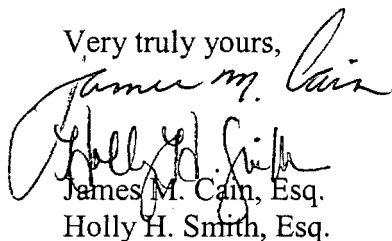 Very truly yours,
James M. Cain
Holly H. Smith
James M. Cain, Esq.
Holly H. Smith, Esq.